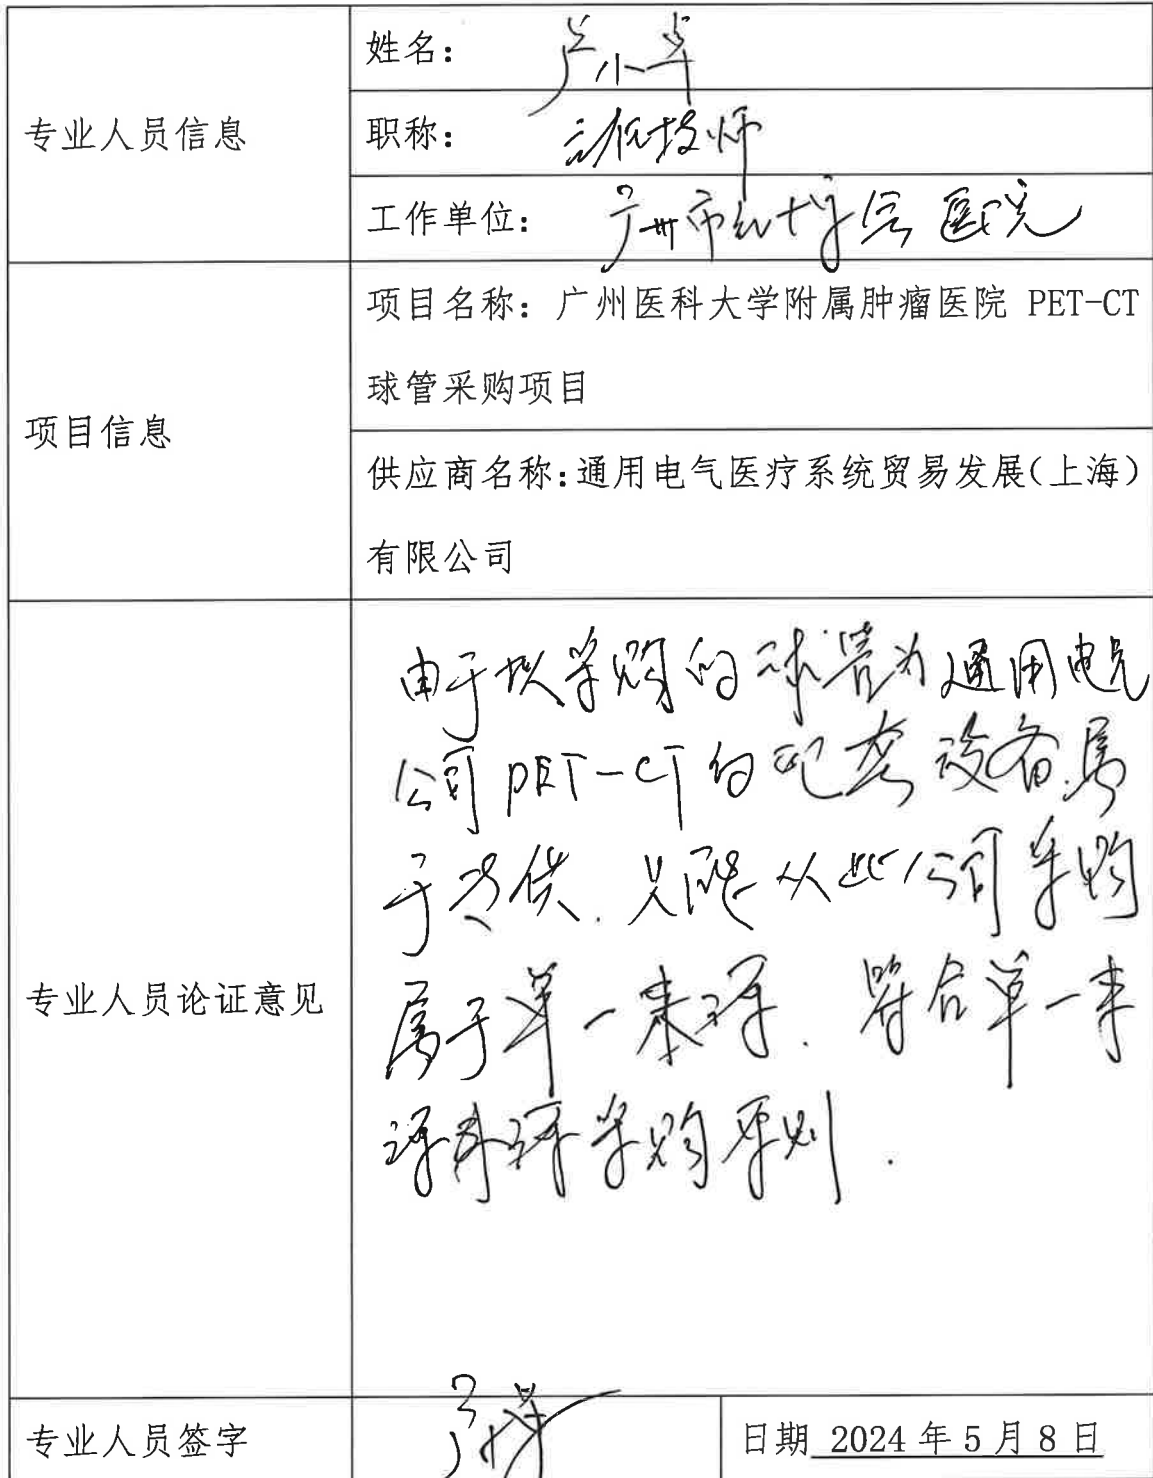 专业人员信息
姓名：卢小卓
职称：主任技师
工作单位：广州市红十字会医院
项目信息
项目名称：广州医科大学附属肿瘤医院 PET-CT
球管采购项目
供应商名称：通用电气医疗系统贸易发展（上海）
有限公司
专业人员论证意见
由于拟采购的球管为通用电气
公司PET-CT的配套设备，属
于专供，只能从此公司采购
属于单一来源．符合单一来
源采购原则．
专业人员签字
日期 2024 年 5 月 8 日